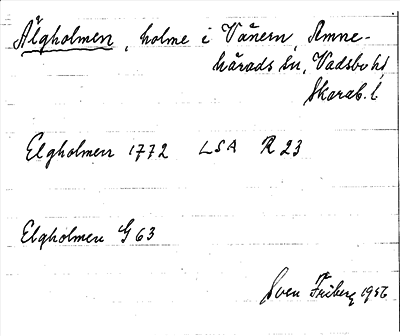 Älgholmen, holme i Vänern, Amne-
härads sn, Vadsbo hd,
Skarab. l
Elgholmen 1772 LSA R 23
Elgholmen G 63
Sven Friberg 1956